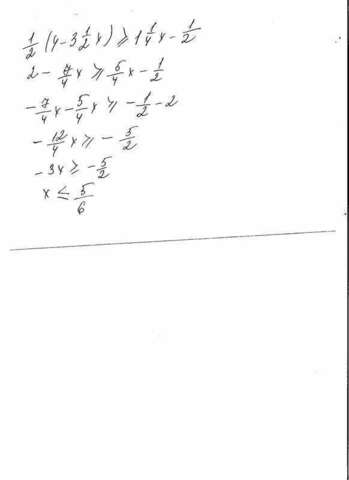 1/2 (4 - 3 1/2 x) ⩾ 1 1/4 x - 1/2
2 - 7/4 x ⩾ 5/4 x - 1/2
- 7/4 x - 5/4 x ⩾ - 1/2 - 2
- 12/4 x ⩾ - 5/2
- 3x ≥ - 5/2
x ≤ 5/6